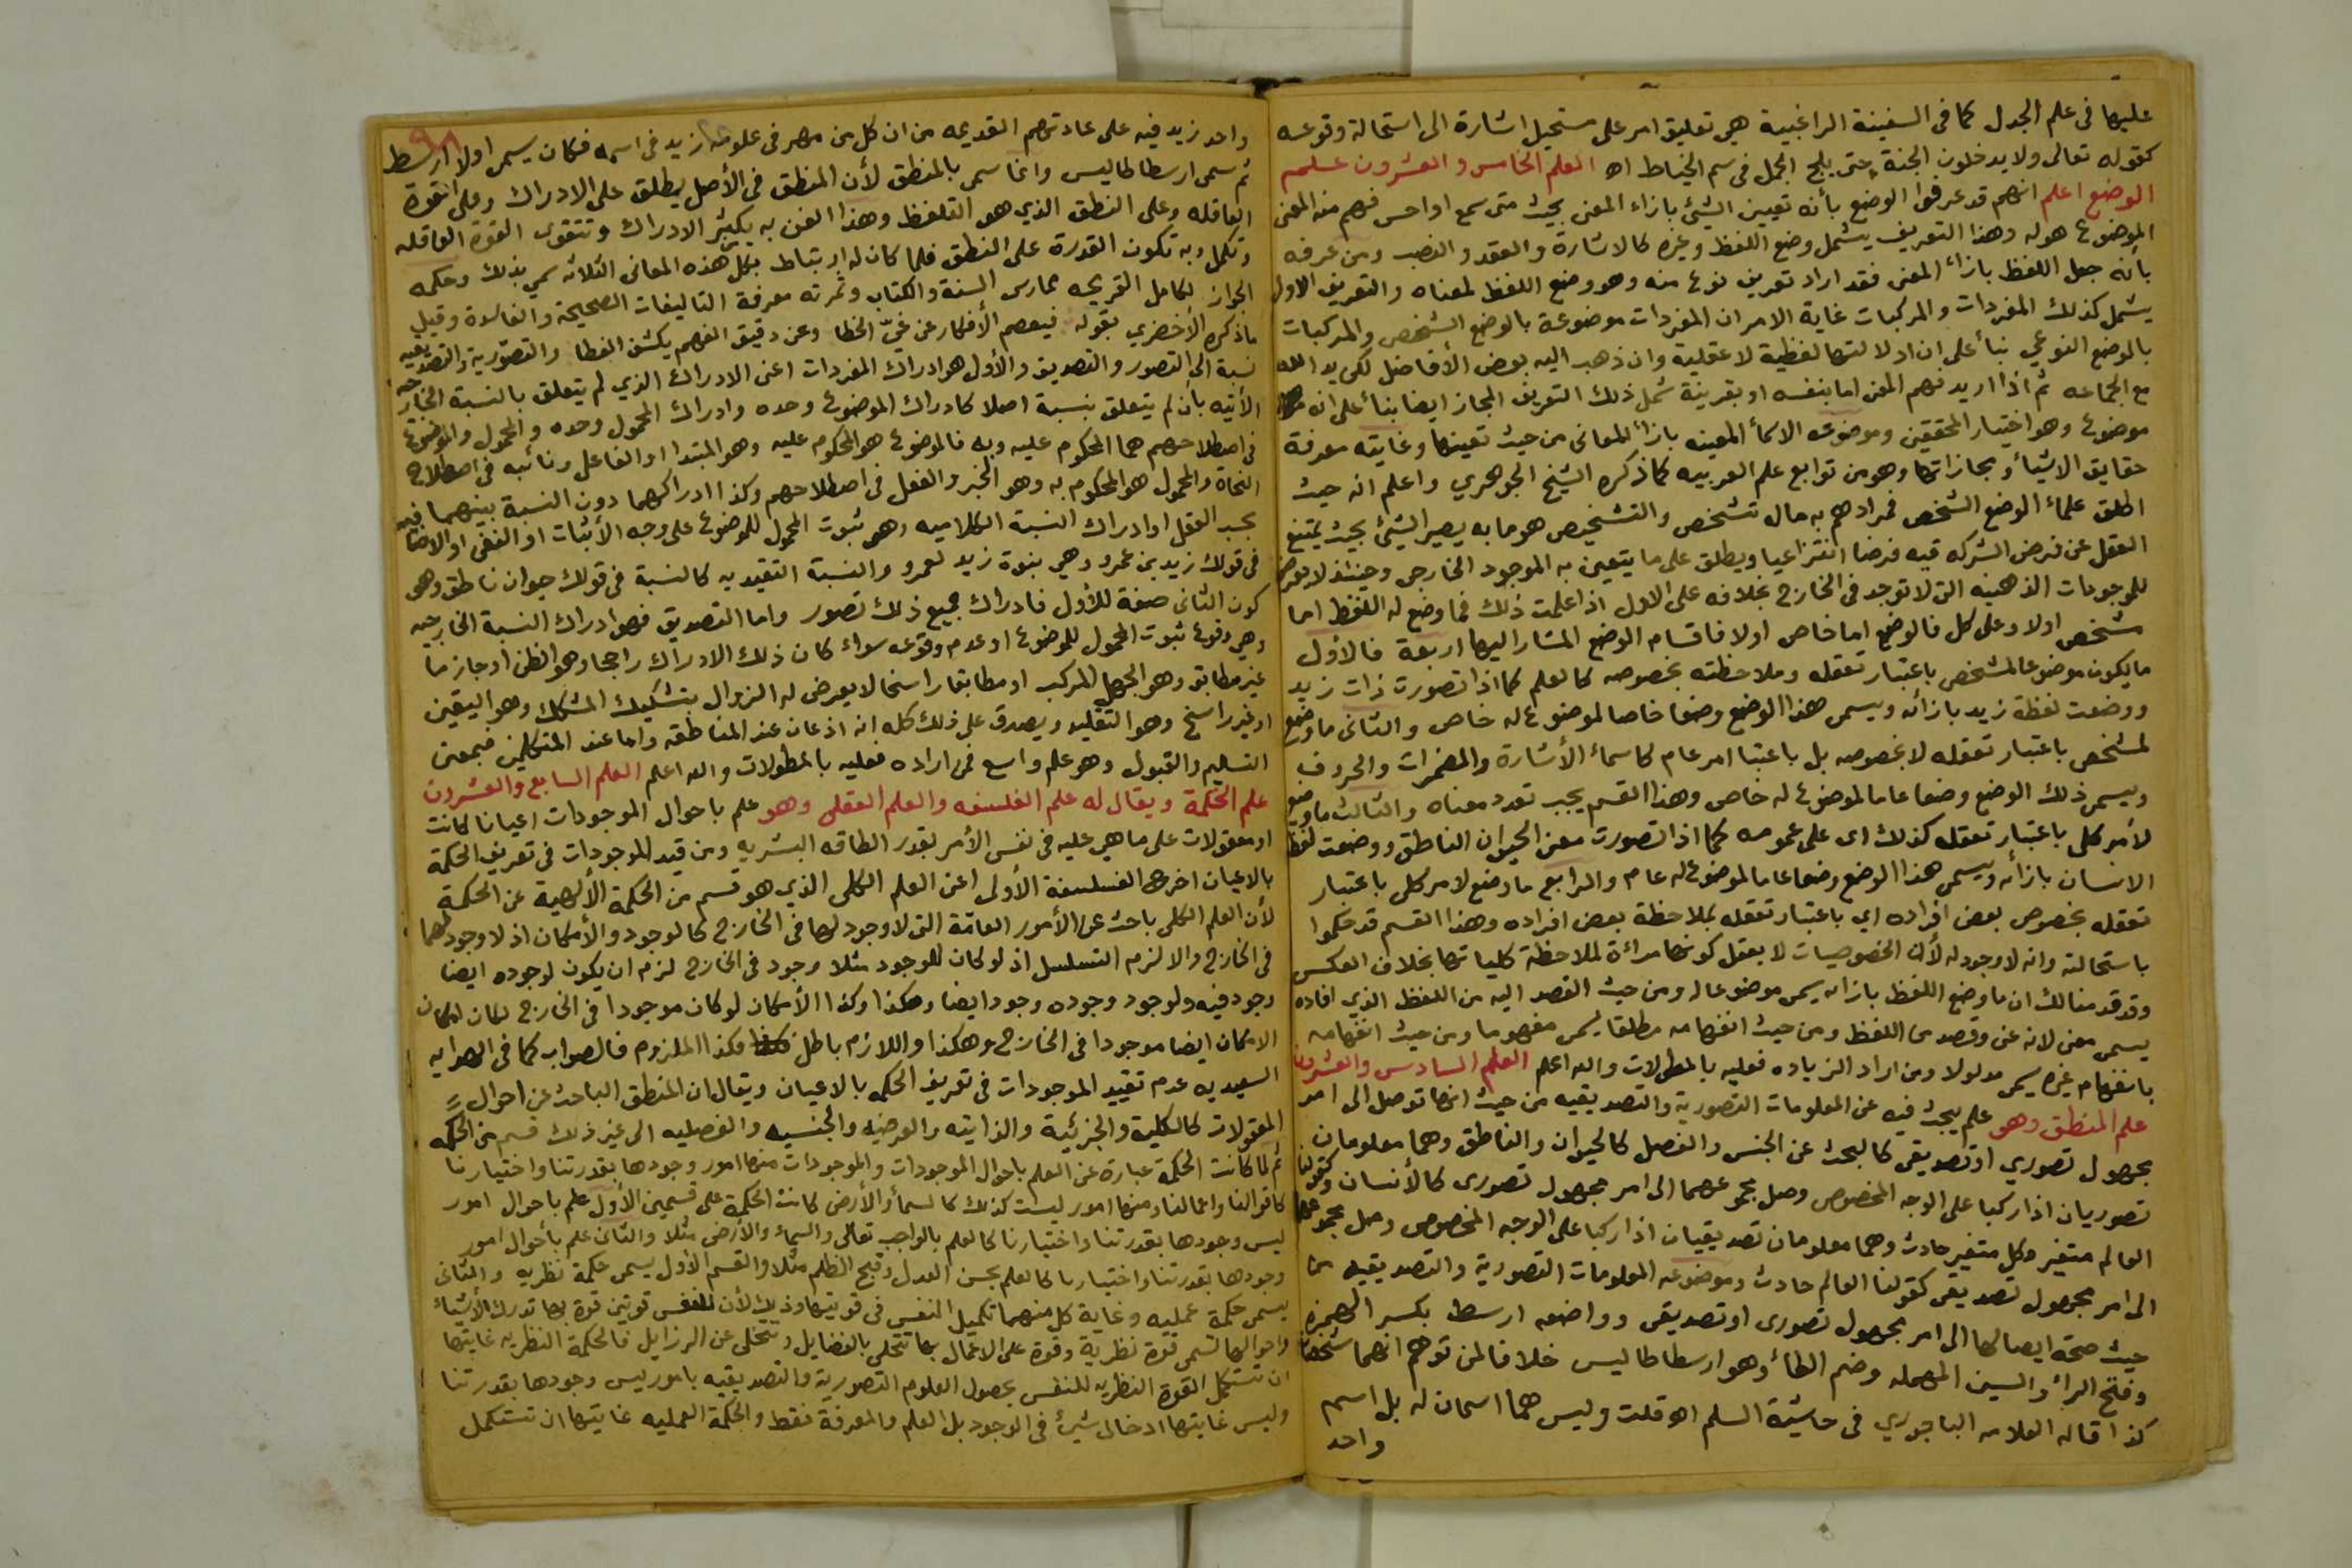 عليها فى علم الجدل كما فى السفينة الراغبية هي تعليق امر على مستحيل اشارة الى استحالة وقوعه
كقوله تعالى ولا يدخلون الجنة حتى يلج الجمل فى سم الخياط اه العلم الخامس والعشرون علم
الوضع اعلم انهم قد عرفوا الوضع بأنه تعيين الشئ بازاء المعنى بحيث متى سمع او احس فهم منه المعنى
الموضوع هو له وهذا التعريف يشمل وضع اللفظ وغيره كالاشارة والعقد والنصب ومن عرفه
بأنه جعل اللفظ بازاء المعنى فقد اراد تعريف نوع منه وهو وضع اللفظ لمعناه والتعريف الاول
يشمل كذلك المفردات والمركبات غاية الامر ان المفردات موضوعة بالوضع الشخصى والمركبات
بالوضع النوعي بنأ على ان دلالتها لفظية لا عقلية وان ذهب اليه بعض الأفاضل لكن يد الله
مع الجماعه ثم اذا اريد فهم المعنى اما بنفسه او بقرينة شمل ذلك التعريف المجاز ايضا بنأ على انه
موضوع وهو اختيار المحققين وموضوعه الاسمأ المعينه بازأ المعانى من حيث تعينها وغايته معرفة
حقايق الاشيأ ومجازاتها وهو من توابع علم العربيه كما ذكره الشيخ الجوهري واعلم انه حيث
اطلق علمأ الوضع الشخص فمرادهم به حال تشخص والتشخيص هو ما به يصير الشئ بحيث يمتنع
العقل عن فرض الشركه فيه فرضا انتزاعيا ويطلق على ما يتعين به الموجود الخارجى وحينئذ لا يعرض
للموجودات الذهنيه التى لا توجد فى الخارج بخلافه على الاول اذا علمت ذلك فما وضع له اللفظ اما
مشخص اولا وعلى كل فالوضع اما خاص اولا فاقسام الوضع المشار اليها اربعة فالأول
ما يكون موضوعا لمشخص باعتبار تعقله وملاحظته بخصوصه كالعلم كما اذا تصورت ذات زيد
ووضعت لفظة زيد بازأئه ويسمى هذا الوضع وضعا خاصا لموضوع له خاص والثانى ما وضع
لمشخص باعتبار تعقله لا بخصوصه بل باعتبا امر عام كاسمأ الأشارة والمضمرات والحروف
ويسمى ذلك الوضع وضعا عاما لموضوع له خاص وهذا القسم يجب تعدد معناه والثالث ما وضع
لأمر كلى باعتبار تعقله كذلك اى على عمومه كما اذا تصورت معنى الحيوان الناطق ووضعت لفظ
الانسان بازأئه ويسمى هذا الوضع وضعا عاما لموضوع له عام والرابع ما وضع لامر كلى باعتبار
تعقله بخصوص بعض افراده اي باعتبار تعقله بملاحظة بعض افراده وهذا القسم قد حكموا
باستحالته وانه لا وجود له لأن الخصوصيات لا يعقل كونها مرأة لملاحظة كلياتها بخلاف العكس
وقد قدمنا لك ان ما وضع اللفظ بازائه يسمى موضوعا له ومن حيث القصد اليه من اللفظ الذي افاده
يسمى معنى لانه عنى وقصد من اللفظ ومن حيث انفهامه مطلقا يسمى مفهوما ومن حيث انفهامه
بانفهام غيره يسمى مدلولا ومن اراد الزياده فعليه بالمطولات والله اعلم العلم السادس والعشرون
علم المنطق وهو علم يبحث فيه عن المعلومات التصورية والتصديقيه من حيث انها توصل الى امر
مجهول تصوري او تصديقى كالبحث عن الجنس والفصل كالحيوان والناطق وهما معلومان
تصوريان اذا ركبا على الوجه المخصوص وصل مجموعهما الى امر مجهول تصورى كالأنسان وكقولنا
العالم متغير وكل متغير حادث وهما معلومان تصديقيان اذا ركبا على الوجه المخصوص وصل مجموعهما
الى امر مجهول تصديقى كقولنا العالم حادث وموضوعه المعلومات التصورية والتصديقيه من
حيث صحة ايصالها الى امر مجهول تصورى او تصديقى وواضعه ارسط بكسر الهمزه
وفتح الرأ والسين المهمله وضم الطأ وهو ارسطاطاليس خلافا لمن توهم انهما شخصان
كذا قاله العلامه الباجوري فى حاشية السلم اه قلت وليس هما اسمان له بل اسم
واحد
٩٨
واحد زيد فيه على عادتهم القديمه من ان كل من مهر فى علوم زيد فى اسمه فكان يسمى اولا ارسط
ثم سمى ارسطاطاليس وانما سمى بالمنطق لأن المنطق فى الأصل يطلق على الادراك وعلى القوة
العاقله وعلى النطق الذي هو التلفظ وهذا الفن به يكثر الادراك وتتقوى القوة العاقله
وتكمل وبه تكون القدرة على النطق فلما كان له ارتباط بكل هذه المعانى الثلاثه سمي بذلك وحكمه
الجواز لكامل القريحه ممارس السنة والكتاب وثمرته معرفة التاليفات الصحيحة والفاسدة وقيل
ما ذكره الأخضري بقوله فيعصم الأفكار عن غيّ الخطا وعن دقيق الفهم يكشف الغطا والتصورية والتصديقيه
نسبة الى التصور والتصديق والأول هو ادراك المفردات اعنى الادراك الذي لم يتعلق بالنسبة الخارجيه
الأتيه بأن لم يتعلق بنسبة اصلا كادراك الموضوع وحده وادراك المحمول وحده والمحمول والموضوع
فى اصطلاحهم هما المحكوم عليه وبه فالموضوع هو المحكوم عليه وهو المبتدا او الفاعل ونائبه فى اصطلاح
النحاة والمحمول هو المحكوم به وهو الخبر والفعل فى اصطلاحهم وكذا ادراكهما دون النسبة بينهما
بحسب العقل او ادراك النسبة الكلاميه وهو ثبوت المحمول للموضوع على وجه الأثبات او النفى او الاضافيه
فى قولك زيد بن عمرو وهي بنوة زيد لعمرو والنسبة التقيديه كالنسبة فى قولك حيوان ناطق وهو
كون الثانى صفة للأول فادراك جميع ذلك تصور واما التصديق فهو ادراك النسبة الخارجيه
وهي وقوع ثبوت المحمول للموضوع او عدم وقوعه سواء كان ذلك الادراك راجحا وهو الظن او جازما
غير مطابق وهو الجهل المركب او مطابقا راسخا لا يعرض له الزوال بتشكيك المشكك وهو اليقين
او غير راسخ وهو التقليد ويصدق على ذلك كله انه اذعان عند المناطقه واما عند المتكلمين فبمعنى
التسليم والقبول وهو علم واسع فمن اراده فعليه بالمطولات والله اعلم العلم السابع والعشرون
علم الحكمة ويقال له علم الفلسفه والعلم العقلى وهو علم باحوال الموجودات اعيانا كانت
او معقولات على ما هي عليه فى نفس الأمر بقدر الطاقه البشريه ومن قيد الموجودات فى تعريف الحكمة
بالاعيان اخرج الفلسفة الأولى اعنى العلم الكلى الذي هو قسم من الحكمة الألهية عن الحكمة
لأن العلم الكلى باحث عن الأمور العامّة التى لا وجود لها فى الخارج كالوجود والأمكان اذ لا وجود لهما
فى الخارج والا لزم التسلسل اذ لو كان للوجود مثلا وجود فى الخارج لزم ان يكون لوجوده ايضا
وجود فيه ولوجود وجوده وجود ايضا وهكذا وكذا الأمكان لو كان موجودا فى الخارج لكان امكان
الامكان ايضا موجودا فى الخارج وهكذا واللازم باطل فكذا الملزوم فالصواب كما فى الهدايه
السعيديه عدم تقييد الموجودات فى تعريف الحكمه بالاعيان ويقال ان المنطق الباحث عن احوال
المعقولات كالكلية والجزئية والذاتيه والعرضيه والجنسيه والفصليه الى غير ذلك قسم من الحكمه
ثم لما كانت الحكمة عبارة عن العلم باحوال الموجودات والموجودات منها امور وجودها بقدرتنا واختيارنا
كاقوالنا واعمالنا ومنها امور ليست كذلك كالسمأ والأرض كانت الحكمة على قسمين الأول علم باحوال امور
ليس وجودها بقدرتنا واختيارنا كالعلم بالواجب تعالى والسماء والأرض مثلا والثانى علم بأحوال امور
وجودها بقدرتنا واختيارنا كالعلم بحسن العدل وقبح الظلم مثلا والقسم الأول يسمى حكمة نظريه والثانى
يسمى حكمة عمليه وغاية كل منهما تكميل النفس فى قوتيها وذلك لأن للنفس قوتين قوة بها تدرك الأشيأ
واحوالها تسمى قوة نظرية وقوة على الاعمال بها تتحلى بالفضايل وتتخلى عن الرزايل فالحكمة النظريه غايتها
ان تستكمل القوة النظريه للنفس بحصول العلوم التصورية والتصديقيه بامور ليس وجودها بقدرتنا
وليس غايتها ادخال شئ فى الوجود بل العلم والمعرفة فقط والحكمة العمليه غايتها ان تستكمل